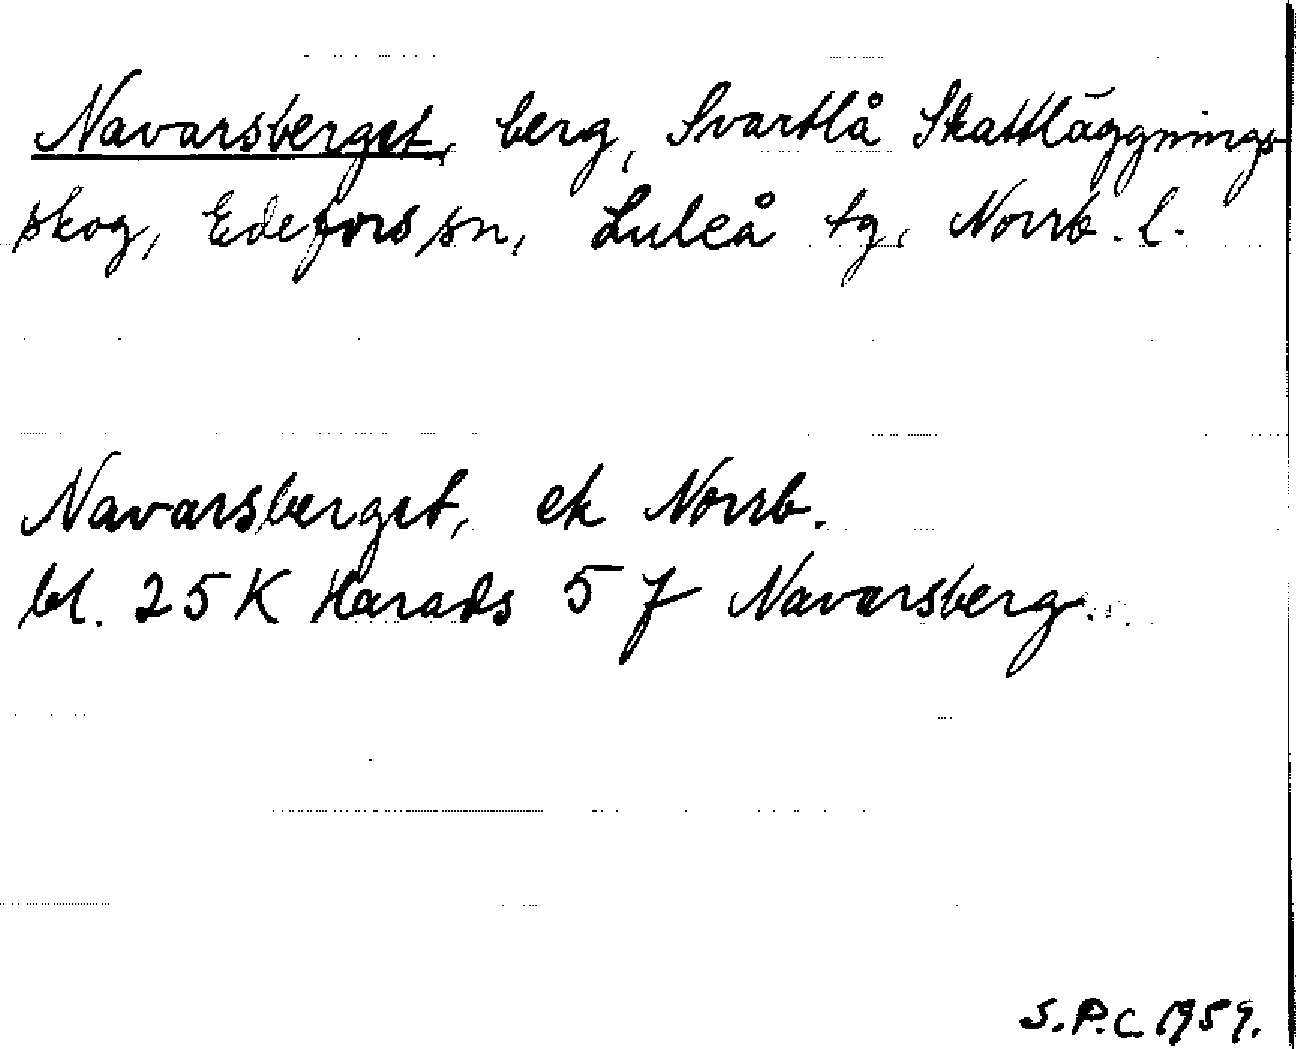 Navarsberget, berg, Svartlå Skattläggnings-
skog, Edefors sn, Luleå tg, Norrb. l.
Navarsberget, ek Norrb.
bl. 25 K Harads 5 f Navarsberg.
S.P.C. 1959.